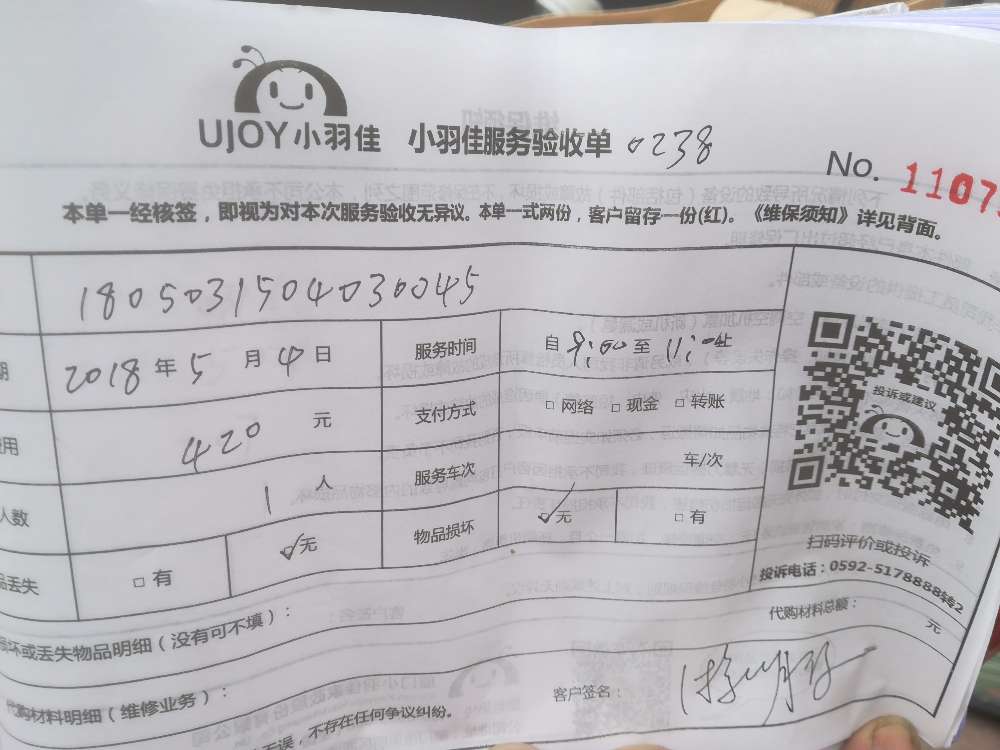 UJOY小羽佳 小羽佳服务验收单 0238
No. 1107
本单一经核签，即视为对本次服务验收无异议。本单一式两份，客户留存一份(红)。《维保须知》详见背面。
1805031504030045
期 2018年5月4日 服务时间 自9:00至11:00止
费用 420 元 支付方式 □ 网络 □ 现金 □ 转账
人数 1 人 服务车次 车/次
品丢失 □ 有 ☑无 物品损坏 ☑无 □ 有
投诉或建议
扫码评价或投诉
投诉电话：0592-5178888转2
损坏或丢失物品明细（没有可不填）：
代购材料总额： 元
代购材料明细（维修业务）：
客户签名：
无误，不存在任何争议纠纷。